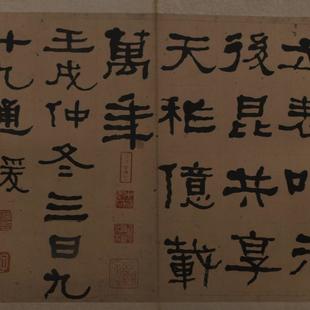 立表以示
後昆共享
天祚億載
萬年
壬戌仲冬三日九
十九通